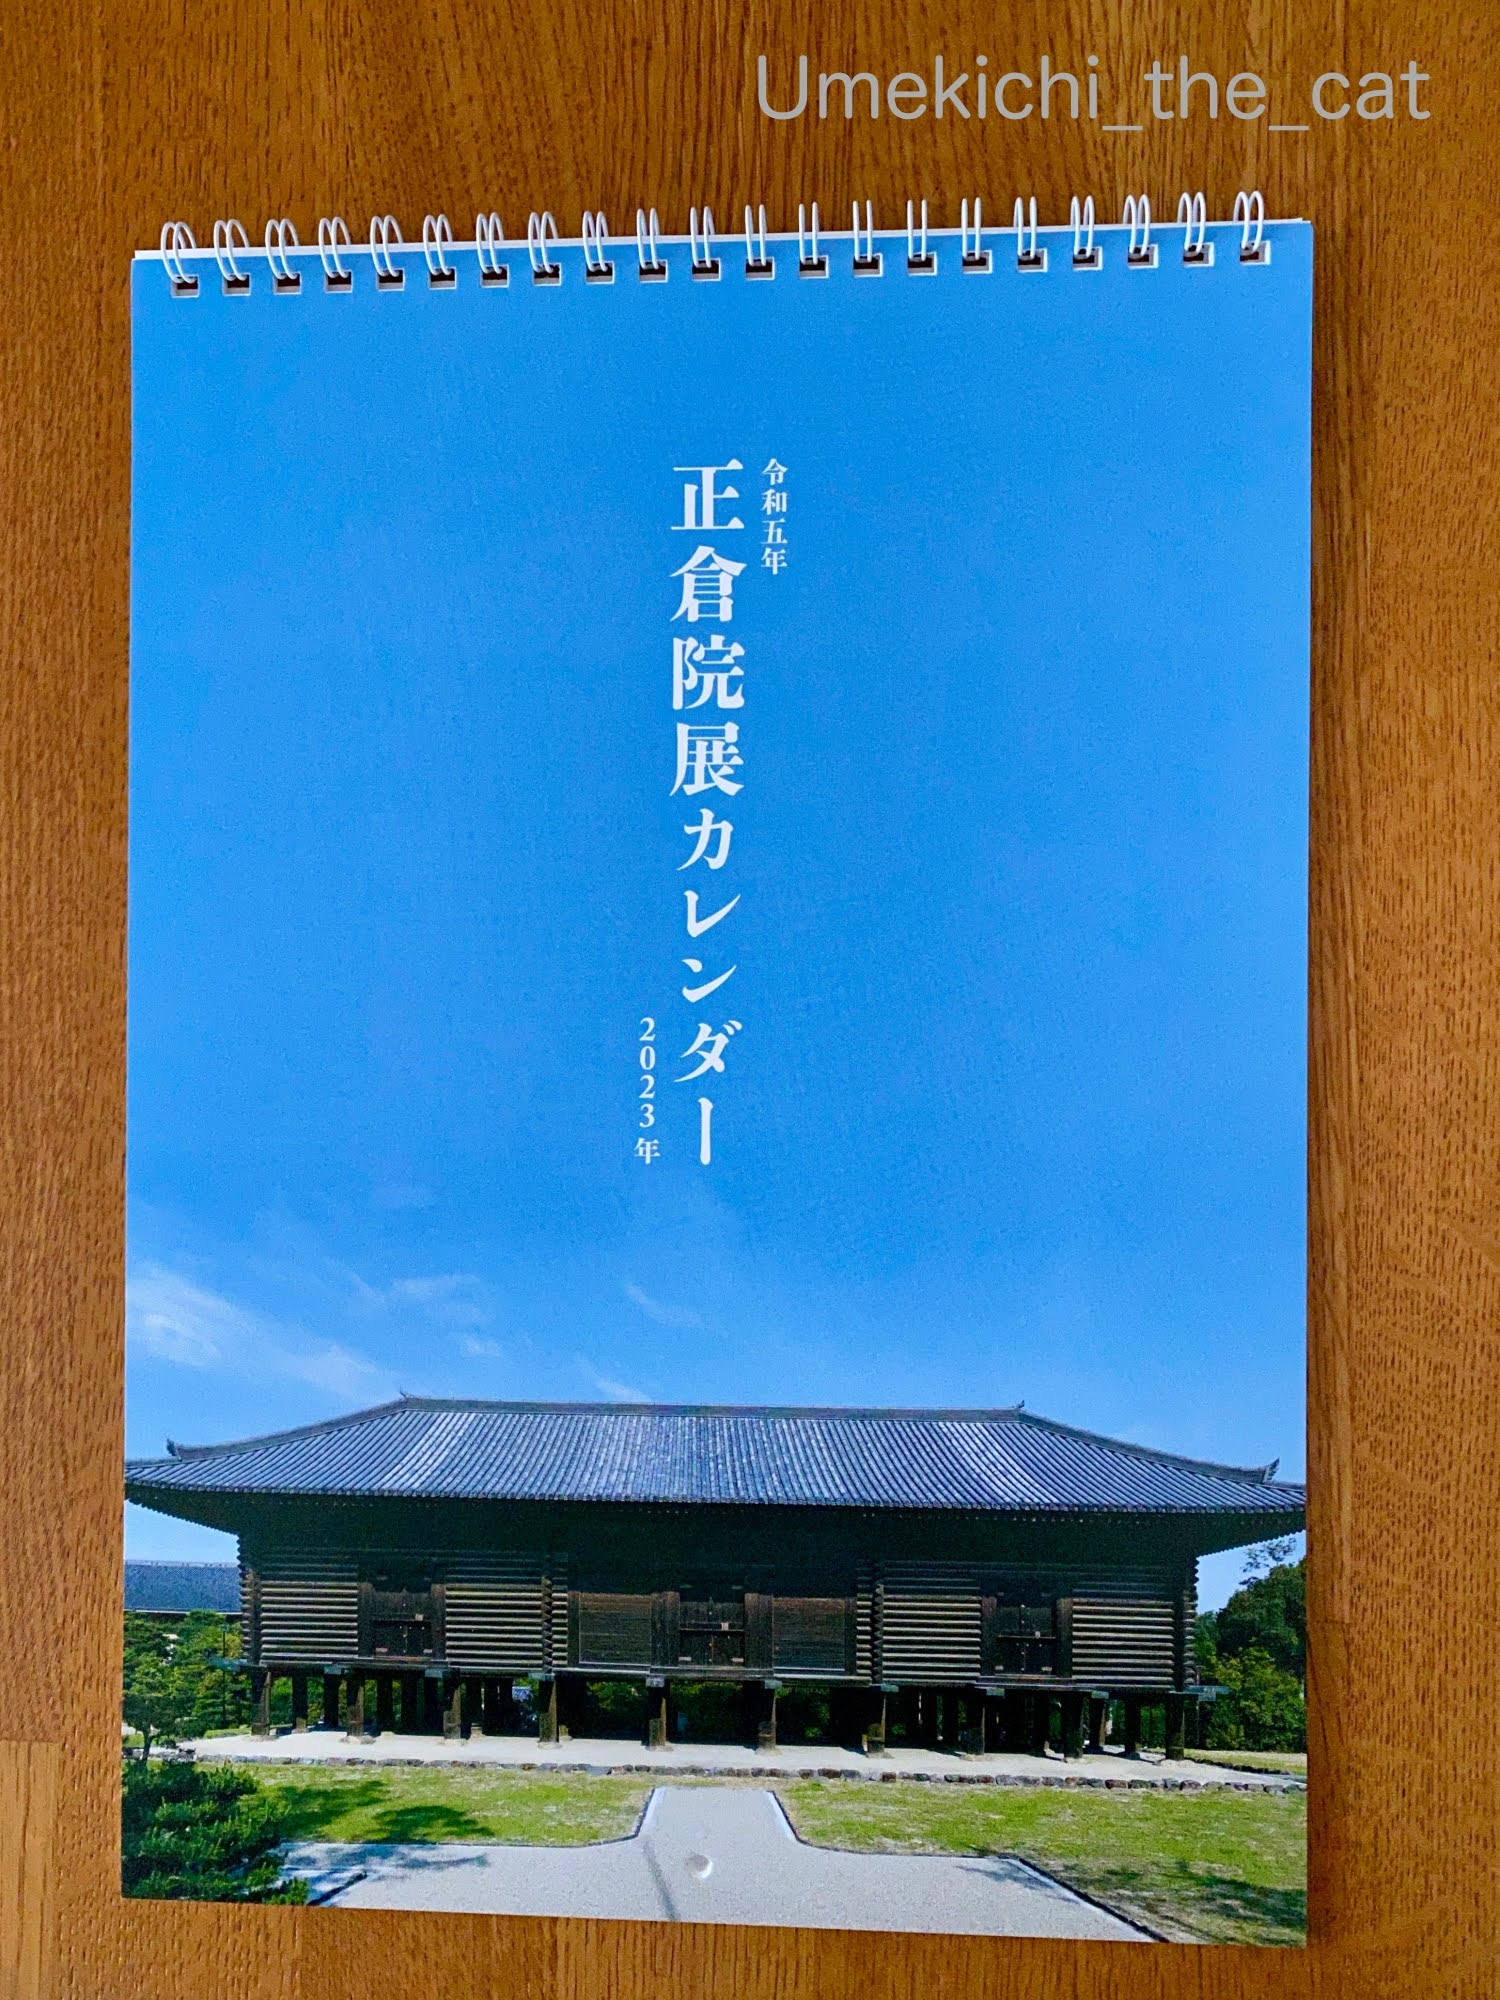 Umekichi_the_cat
令和五年
正倉院展カレンダー
2023年